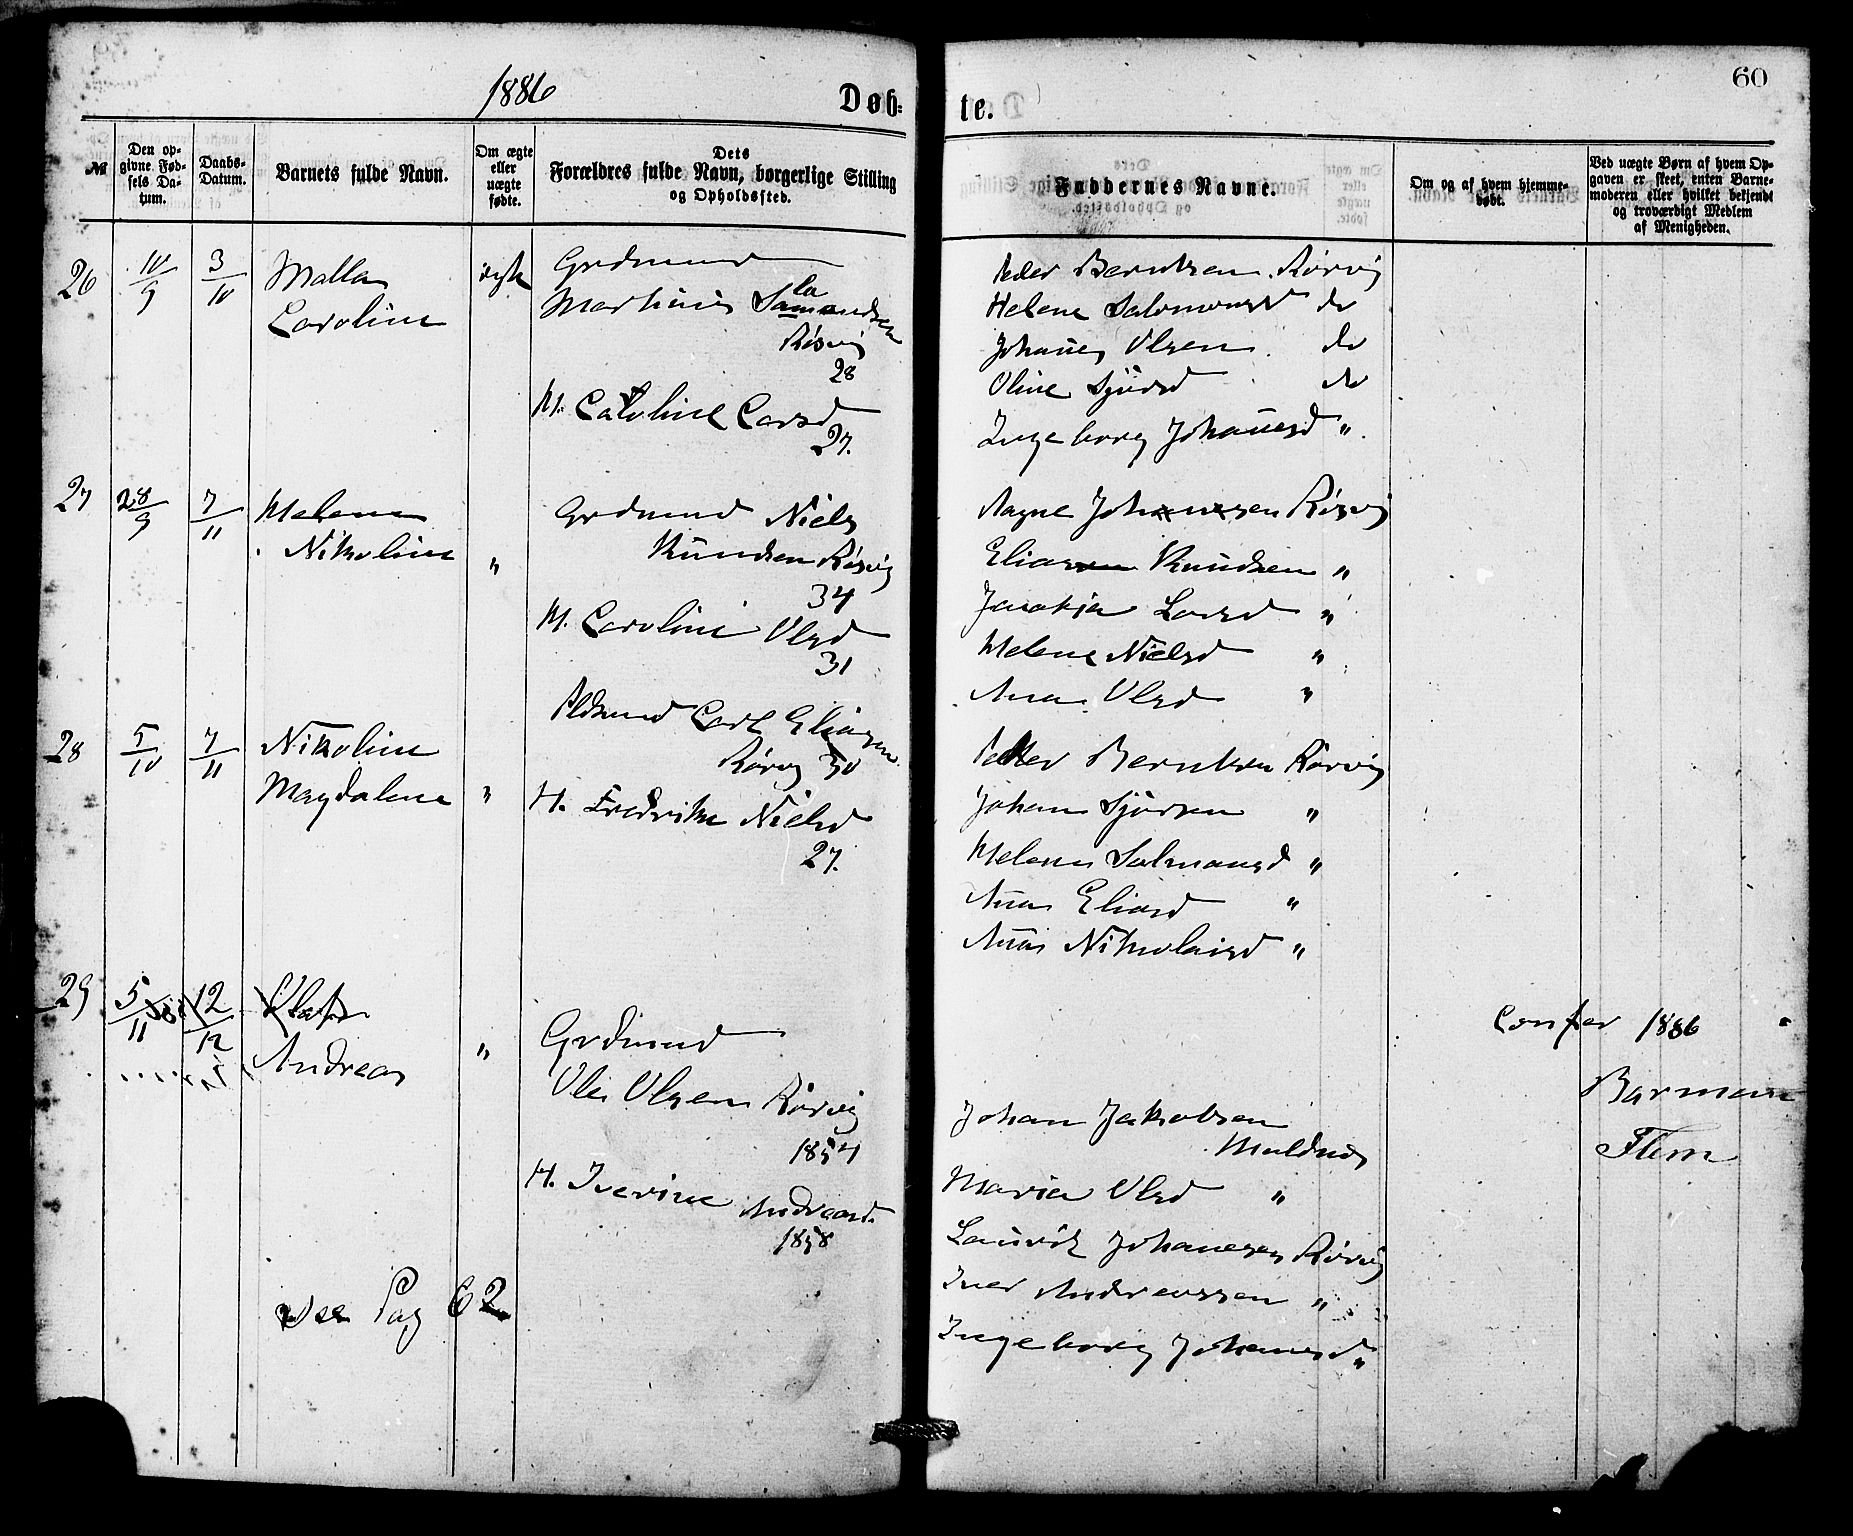 1886
Døb-
te.
60
№
Den op-
givne Fød-
sels Da-
tum.
Daabs-
Datum.
Barnets fulde Navn.
Om ægte
eller
uægte
fødte.
Dets
Forældres fulde Navn, borgerlige Stilling
og Opholdssted.
Faddernes Navne.
Om og af hvem hjemme-
døbt.
Ved uægte Børn af hvem Op-
gaven er skeet, enten Barne-
moderen eller hvilket bekjendt
og troværdigt Medlem
af Menigheden.
26 10/9 3/10 Malla
Caroline
ægte
Grdmand
Martinus
Røsvig
28
H. Caroline Larsd
27.
Peder Berntsen Rørvig
Helene Salomonsd do
Johannes Olsen do
Oline Sjursd do
Ingeborg Johannesd "
27 28/9 7/11 Helene
Nikoline
"
Grdmand Niels
Knudsen Røsvig
34
H. Caroline Olsd
31
Aagne Johansen Røsvig
Elias Knudsen "
Larsd "
Helene Nielsd "
Anna Olsd "
28 5/10 7/11 Nikoline
Magdalene
"
Carl Eliasen
Rørvig 30
H. Fredrikke Nielsd
27.
Petter Berntsen Rørvig
Johan Sjursen "
Helene Salmonsd "
Anna Eliasd "
Anna Nikolaisd "
29 5/11 12/12 Olaf
Andreas
"
Grdmand
Ole Olsen Rørvig
1854
H. Iverine Andreasd.
1858
see Pag 62
Confer 1886
Barman
Flem
Johan Jakobsen
Muldnes
Maria Olsd "
Lauritz Johannesen Rørvig
Iver Andreassen "
Ingeborg Johannesd "